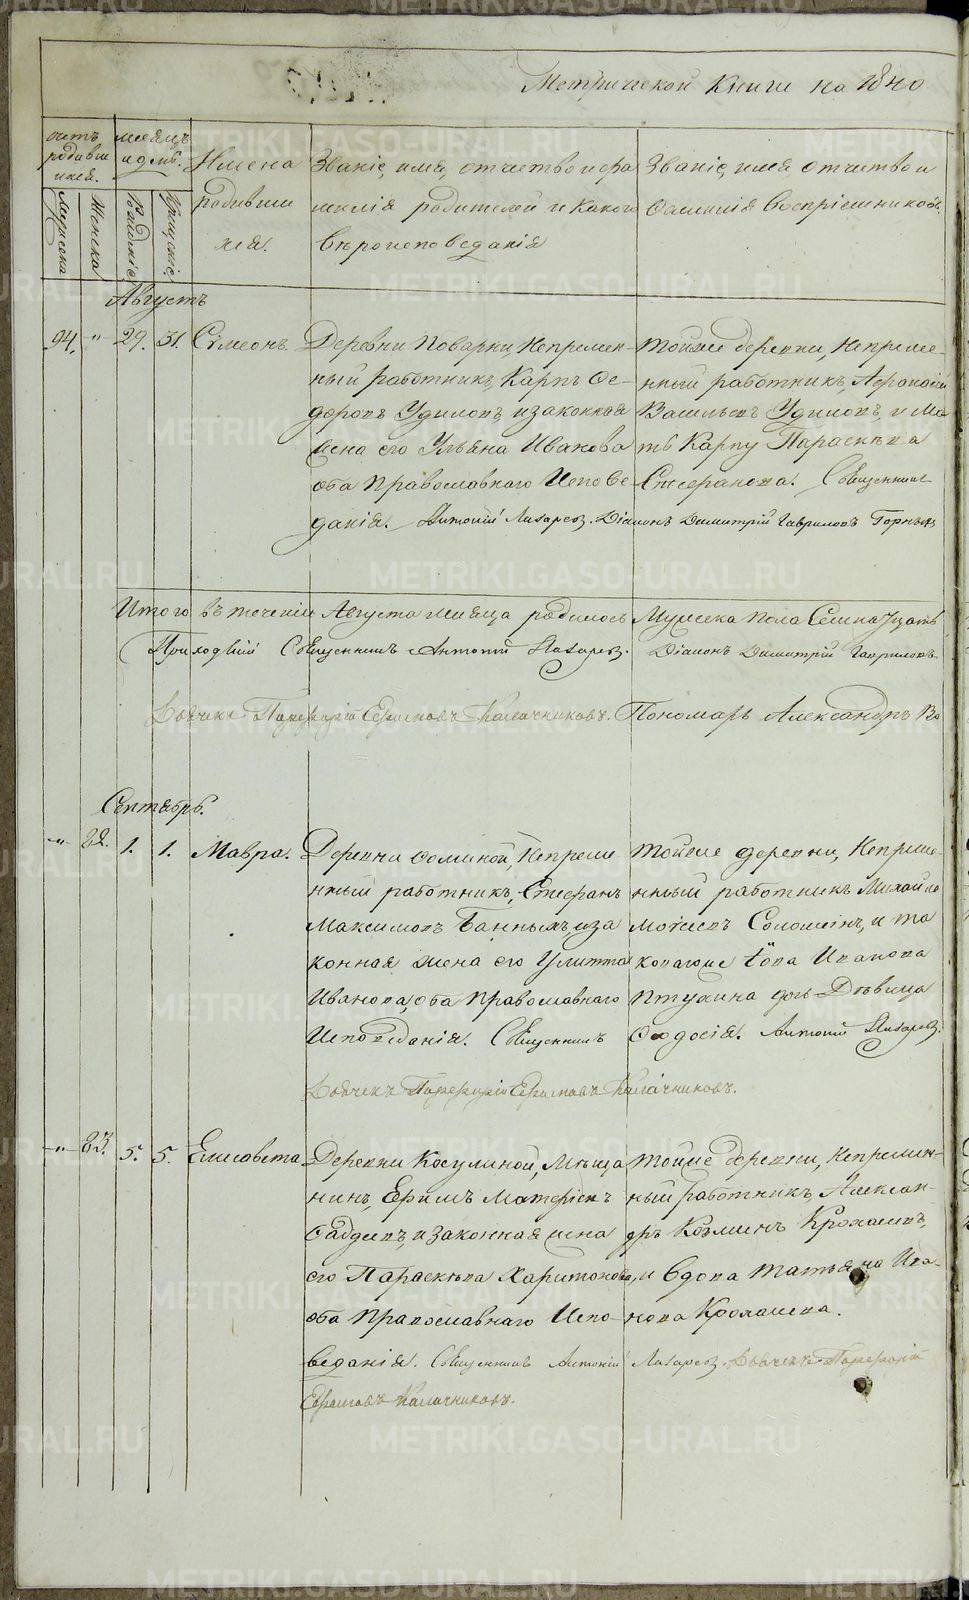 Метрической Книги на 1840
счетъ родившихся.
Мужеска
Женска
месяцъ и день.
Рожденіе
Крещеніе
Имена родившихся.
Званіе, имя, отчество и фамилія родителей и какого вероисповеданія
Званіе, имя, отчество и Фамилія Воспріемниковъ.
Августъ
94. " 29. 31. Сімеонъ.
Деревни Поварни Непремен-
ный работникъ, Карпъ Ѳе-
доровъ Удиловъ, и законная
жена его Ульяна Иванова
оба Православнаго Испове-
данія.
Тойже деревни, Непреме-
нный работникъ, Аѳанасій
Васильевъ Удиловъ, и Ма
ть Карпу Параскева
Стефанова. Священникъ
Антоній Лазаревъ. Діаконъ Димитрій Гавриловъ
Итого въ теченіи Августа месяца родилось Мужеска пола Семнадцать
Приходскій Священникъ Антоній Лазаревъ. Діаконъ Димитрій Гавриловъ
Дьячекъ Порфирій Ефимовъ Калачниковъ. Пономарь Александръ
Сентябрь.
" 82. 1. 1. Мавра.
Деревни Фоминой, Непреме-
нный работникъ, Стефанъ
Максимовъ Банныхъ, и за
конная жена его Улитта
Иванова, оба Православнаго
Исповеданія. Священникъ
Тойже деревни, Непреме-
нный работникъ Михайло
Моисеевъ Соломеинъ, и та
коваяже вдова Иванова
Птухина дочь Девица
Ѳеодосія. Антоній Лазаревъ.
Дьячекъ Порфирій Ефимовъ Калачниковъ.
" 83. 5. 5. Елисавета
Деревни Косулиной, Меща
нинъ, Ефимъ Матфіевъ
Фаддеевъ, и законная жена
его Параскева Харитонова,
оба Православнаго Испо-
веданія.
Тойже деревни, Непремен-
ный работникъ, Алексан-
дръ Козминъ Крохалевъ,
и вдова Татьяна Ива-
нова Крохалева.
Священникъ Антоній Лазаревъ. Дьячекъ Порфирій
Ефимовъ Калачниковъ.
METRIKI.GASO-URAL.RU